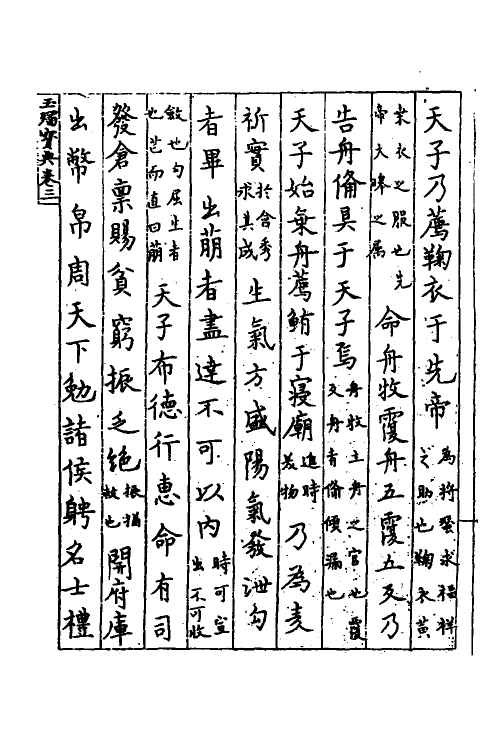 天子乃薦鞠衣于先帝為將蚕求福祥之助也鞠衣黄
桒衣之服也先帝大皥之属命舟牧覆舟五覆五反乃
告舟偹具于天子焉舟牧主舟之官也覆反舟者偹傾漏也
天子始乗舟薦鮪于寝廟進時美物乃為麦
祈實於含秀求其成生氣方盛陽氣發泄勾
者畢出萠者盡達不可以内時可宣出不可收
斂也勾屈生者也芒而直曰萠天子布德行惠命有司
發倉禀賜貧窮振乏絶振猶救也開府庫
出幣帛周天下勉諸侯聘名士禮
玉燭寳典卷三